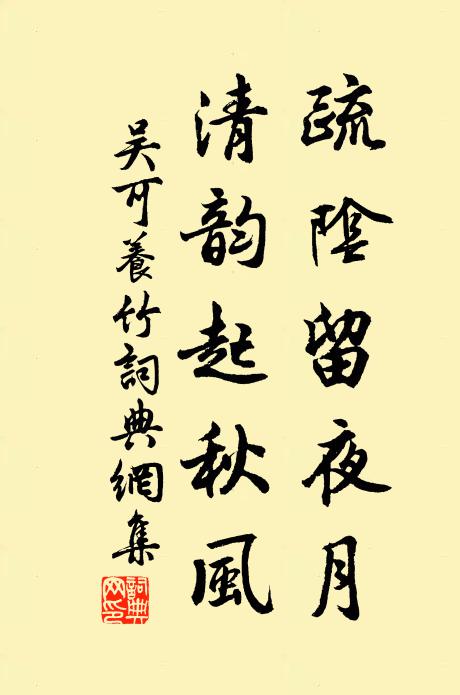 疏陰留夜月
清韵起秋風
吴可養竹詞典網集
詞典網印